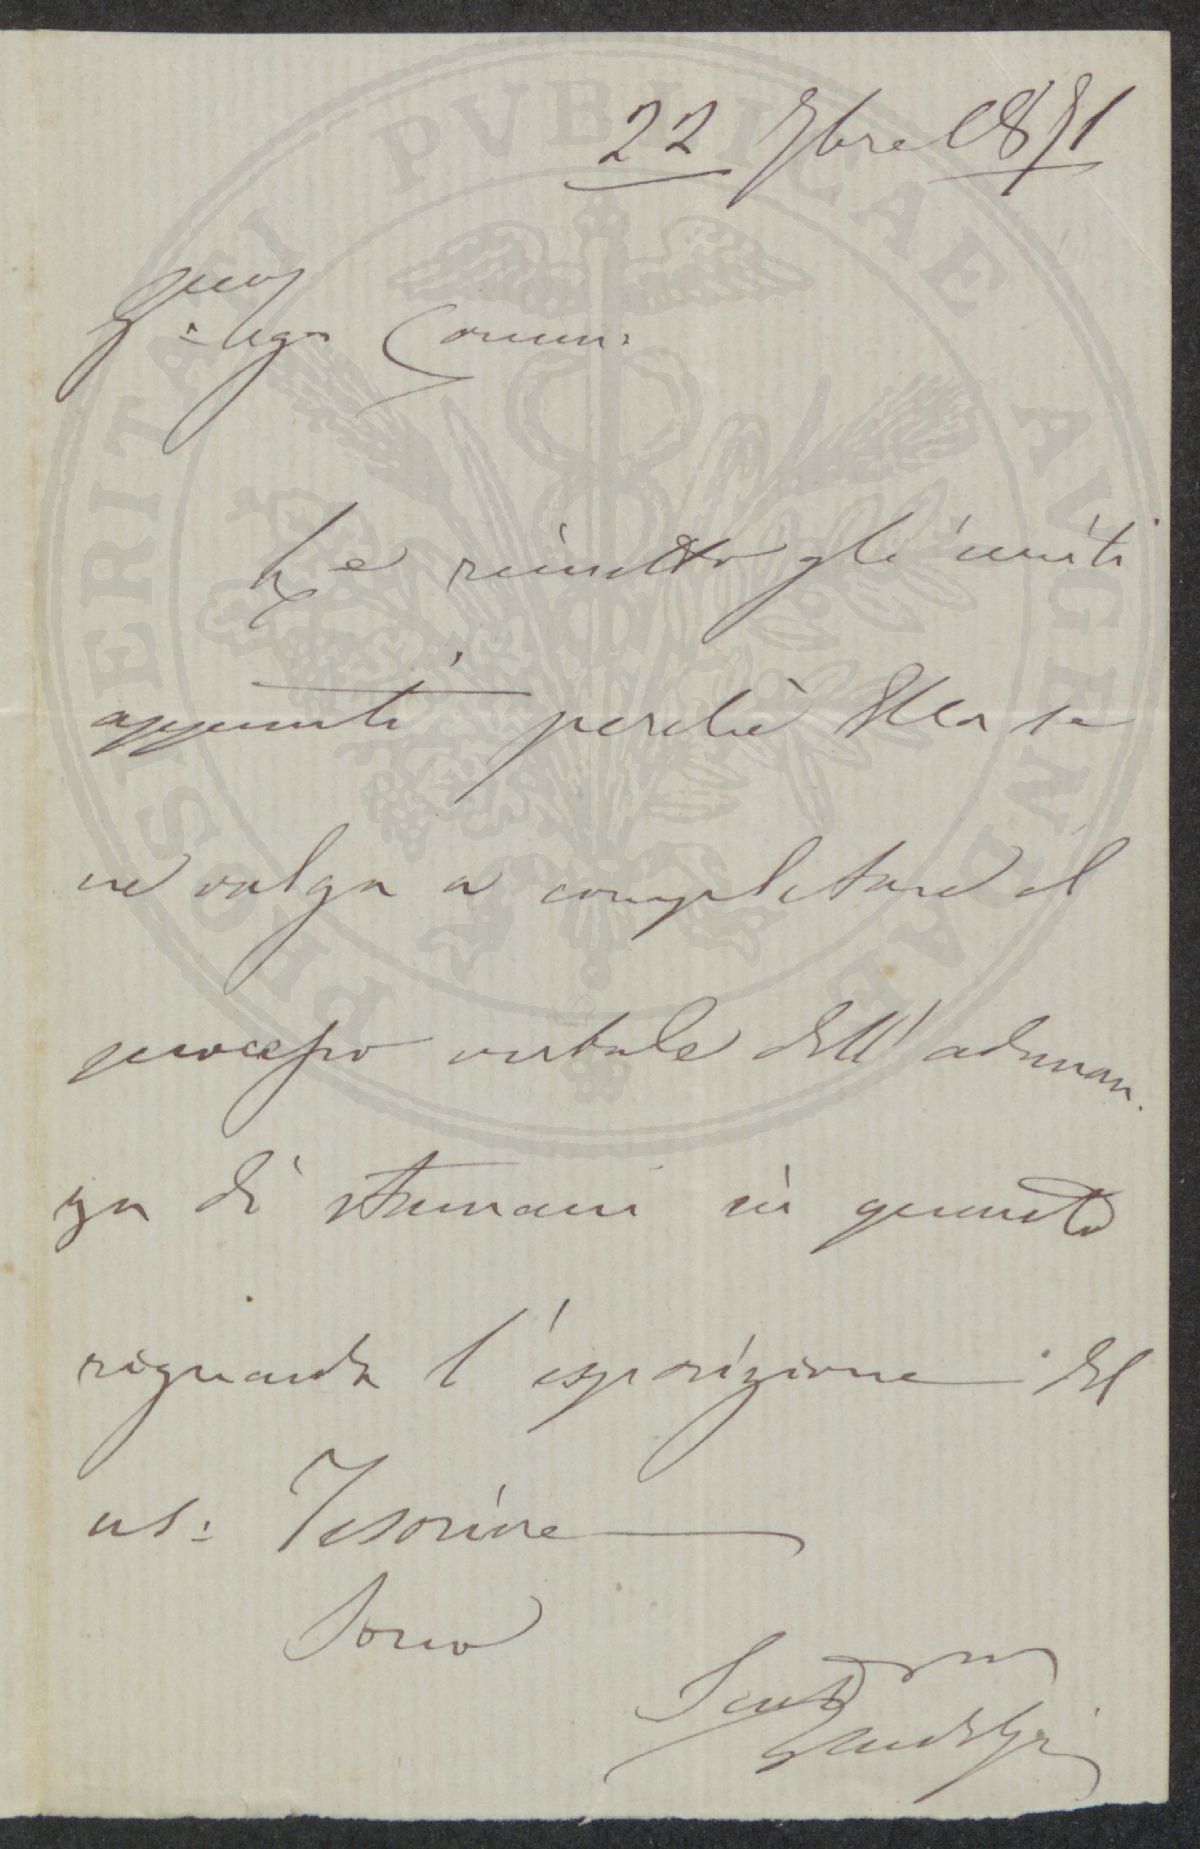 22 Xbre 1871
Le rimetto gli uniti
appunti perchè Ella se
ne valga a completare il
processo verbale dell'adunan.
za di stamani in quanto
riguarda l'esposizione del
ns: Tesoriere
Sono
PROSPERITATI PVBLICAE AVGENDAE